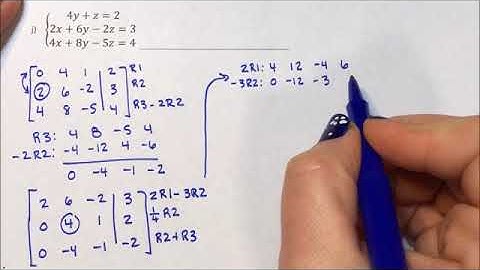 j) 4y + z = 2
2x + 6y - 2z = 3
4x + 8y - 5z = 4
0 4 1 2 R1
2 6 -2 3 R2
4 8 -5 4 R3-2R2
R3: 4 8 -5 4
-2R2: -4 -12 4 -6
0 -4 -1 -2
2 6 -2 3 2R1-3R2
0 4 1 2 1/4 R2
0 -4 -1 -2 R2+R3
2R1: 4 12 -4 6
-3R2: 0 -12 -3